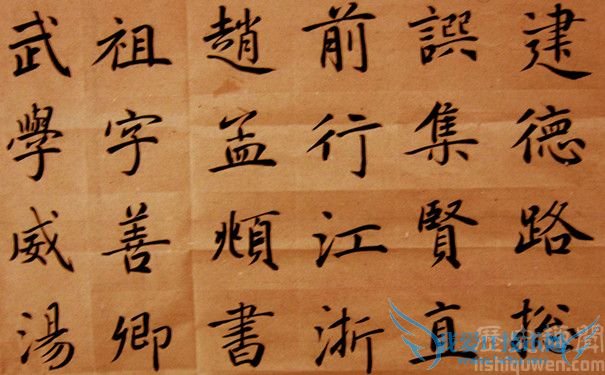 建德路
譔集賢直
前行江浙
趙孟頫書
祖字善卿
武學威湯
lishiquwen.com